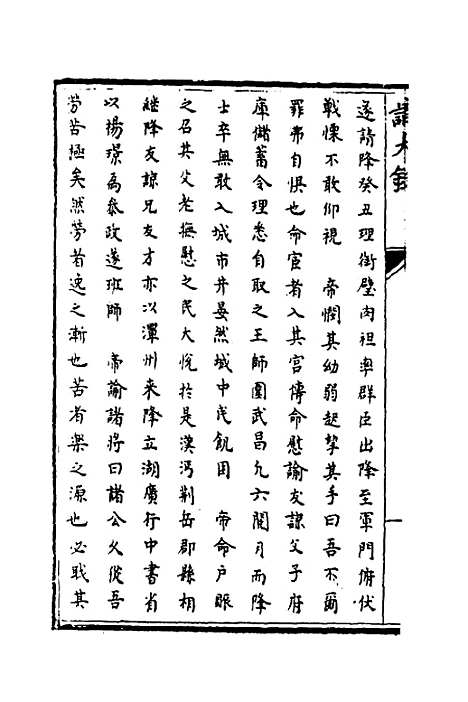 遂請降癸丑理銜璧肉袒率群臣出降至軍門俯伏
戰慄不敢仰視　帝憫其幼弱起挈其手曰吾不爾
罪弗自懼也命宦者入其宮傳命慰諭友諒父子府
庫儲蓄令理悉自取之王師圍武昌凡六閱月而降
士卒無敢入城市井晏然城中民飢困　帝命戶賑
之召其父老撫慰之民大悅於是漢沔荊岳郡縣相
繼降友諒兄友才亦以潭州来降立湖廣行中書省
以楊璟為叅政遂班師　帝諭諸將曰諸公久從吾
勞苦極矣然勞者逸之漸也苦者樂之源也必戢其